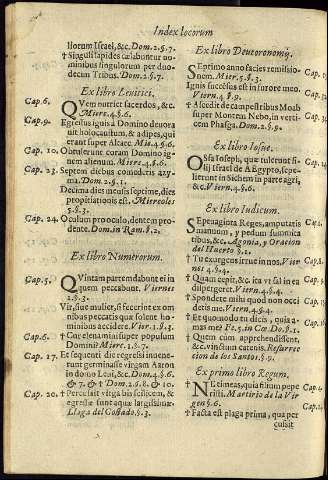 Index locorum
llorum Israel, &c. Dom. 2. §. 7.
† Singuli lapides cælabantur no-
minibus singulorum per duo-
decim Tribus. Dom. 2. §. 7.
Ex libro Levitici.
Cap. 6. QVem nutrit sacerdos, &c.
Mierc. 4. §. 6.
Cap. 9. Egressus ignis à Domino devora
vit holocaustum, & adipes, qui
erant super Altare. Mie. 4. §. 6.
Cap. 10. Obtulerunt coram Domino ig
nem alienum. Mierc. 4. §. 6.
Cap. 23. Septem diebus comedetis azy-
ma. Dom. 2. §. 1.
Decima dies mensis septime, dies
propitiationis est. Miercoles
§. 3.
Cap. 24. Oculum pro oculo, dentem pro
dente. Dom. in Ram. §. 2.
Ex libro Numerorum.
Cap. 5. QVintam partem dabunt ei in
quem peccabunt. Viernes
2. §. 3.
Vir, sive mulier, si fecerint ex om
nibus peccatis quæ solent ho-
minibus accidere. Vier. 1. §. 3.
Cap. 6. † Cur elevamini super populum
Domini? Mierc. 1. §. 7.
Cap. 17. † Et sequenti die regressi invene-
runt germinasse virgam Aaron
in domo Leui, &c. Dom. 4. §. 6.
& 7. & † Dom. 2. §. 8. & 10.
Cap. 20. † Percussit virga bis silicem, &
egressæ sunt aquæ largissimæ.
Llaga del Costado. §. 3.
Ex libro Deuteronomij.
SEptimo anno facies remissio-
nem. Mierc. §. 3.
Ignis succensus est in furore meo.
Viern. 4. §. 9.
† Ascedit de campestribus Moab
super Montem Nebo, in verti-
cem Phasga. Dom. 2. §. 9.
Ex libro Iosue.
OSsa Ioseph, quæ tulerunt fi-
lij Israel de AEgypto, sepe-
lierunt in Sichem in parte agri,
&c. Viern. 4. §. 6.
Ex libro Iudicum.
SEptuaginta Reges, amputatis
manuum, y pedum summica
tibus, &c. Agonia, y Oracion
del Huerto §. 1.
† Tu exurgens irrue in nos. Vier
nes 4. §. 4.
dispergeret. Viern. 4. §. 4.
† Spondete mihi quod non occi
detis me. Viern. 4. §. 4.
† Et quomodo tu dicis, quia a-
mas me? Fe. 3. in Cœ. Do. §. 1.
† Quem cum apprehendissent,
& vinctum catenis. Resurrec
tion de los Santos. §. 9.
Ex primo libro Regum.
NE timeas, quia filium pepe
risti. Martirio de la Vir
gen §. 6.
† Facta est plaga prima, qua per
cussit